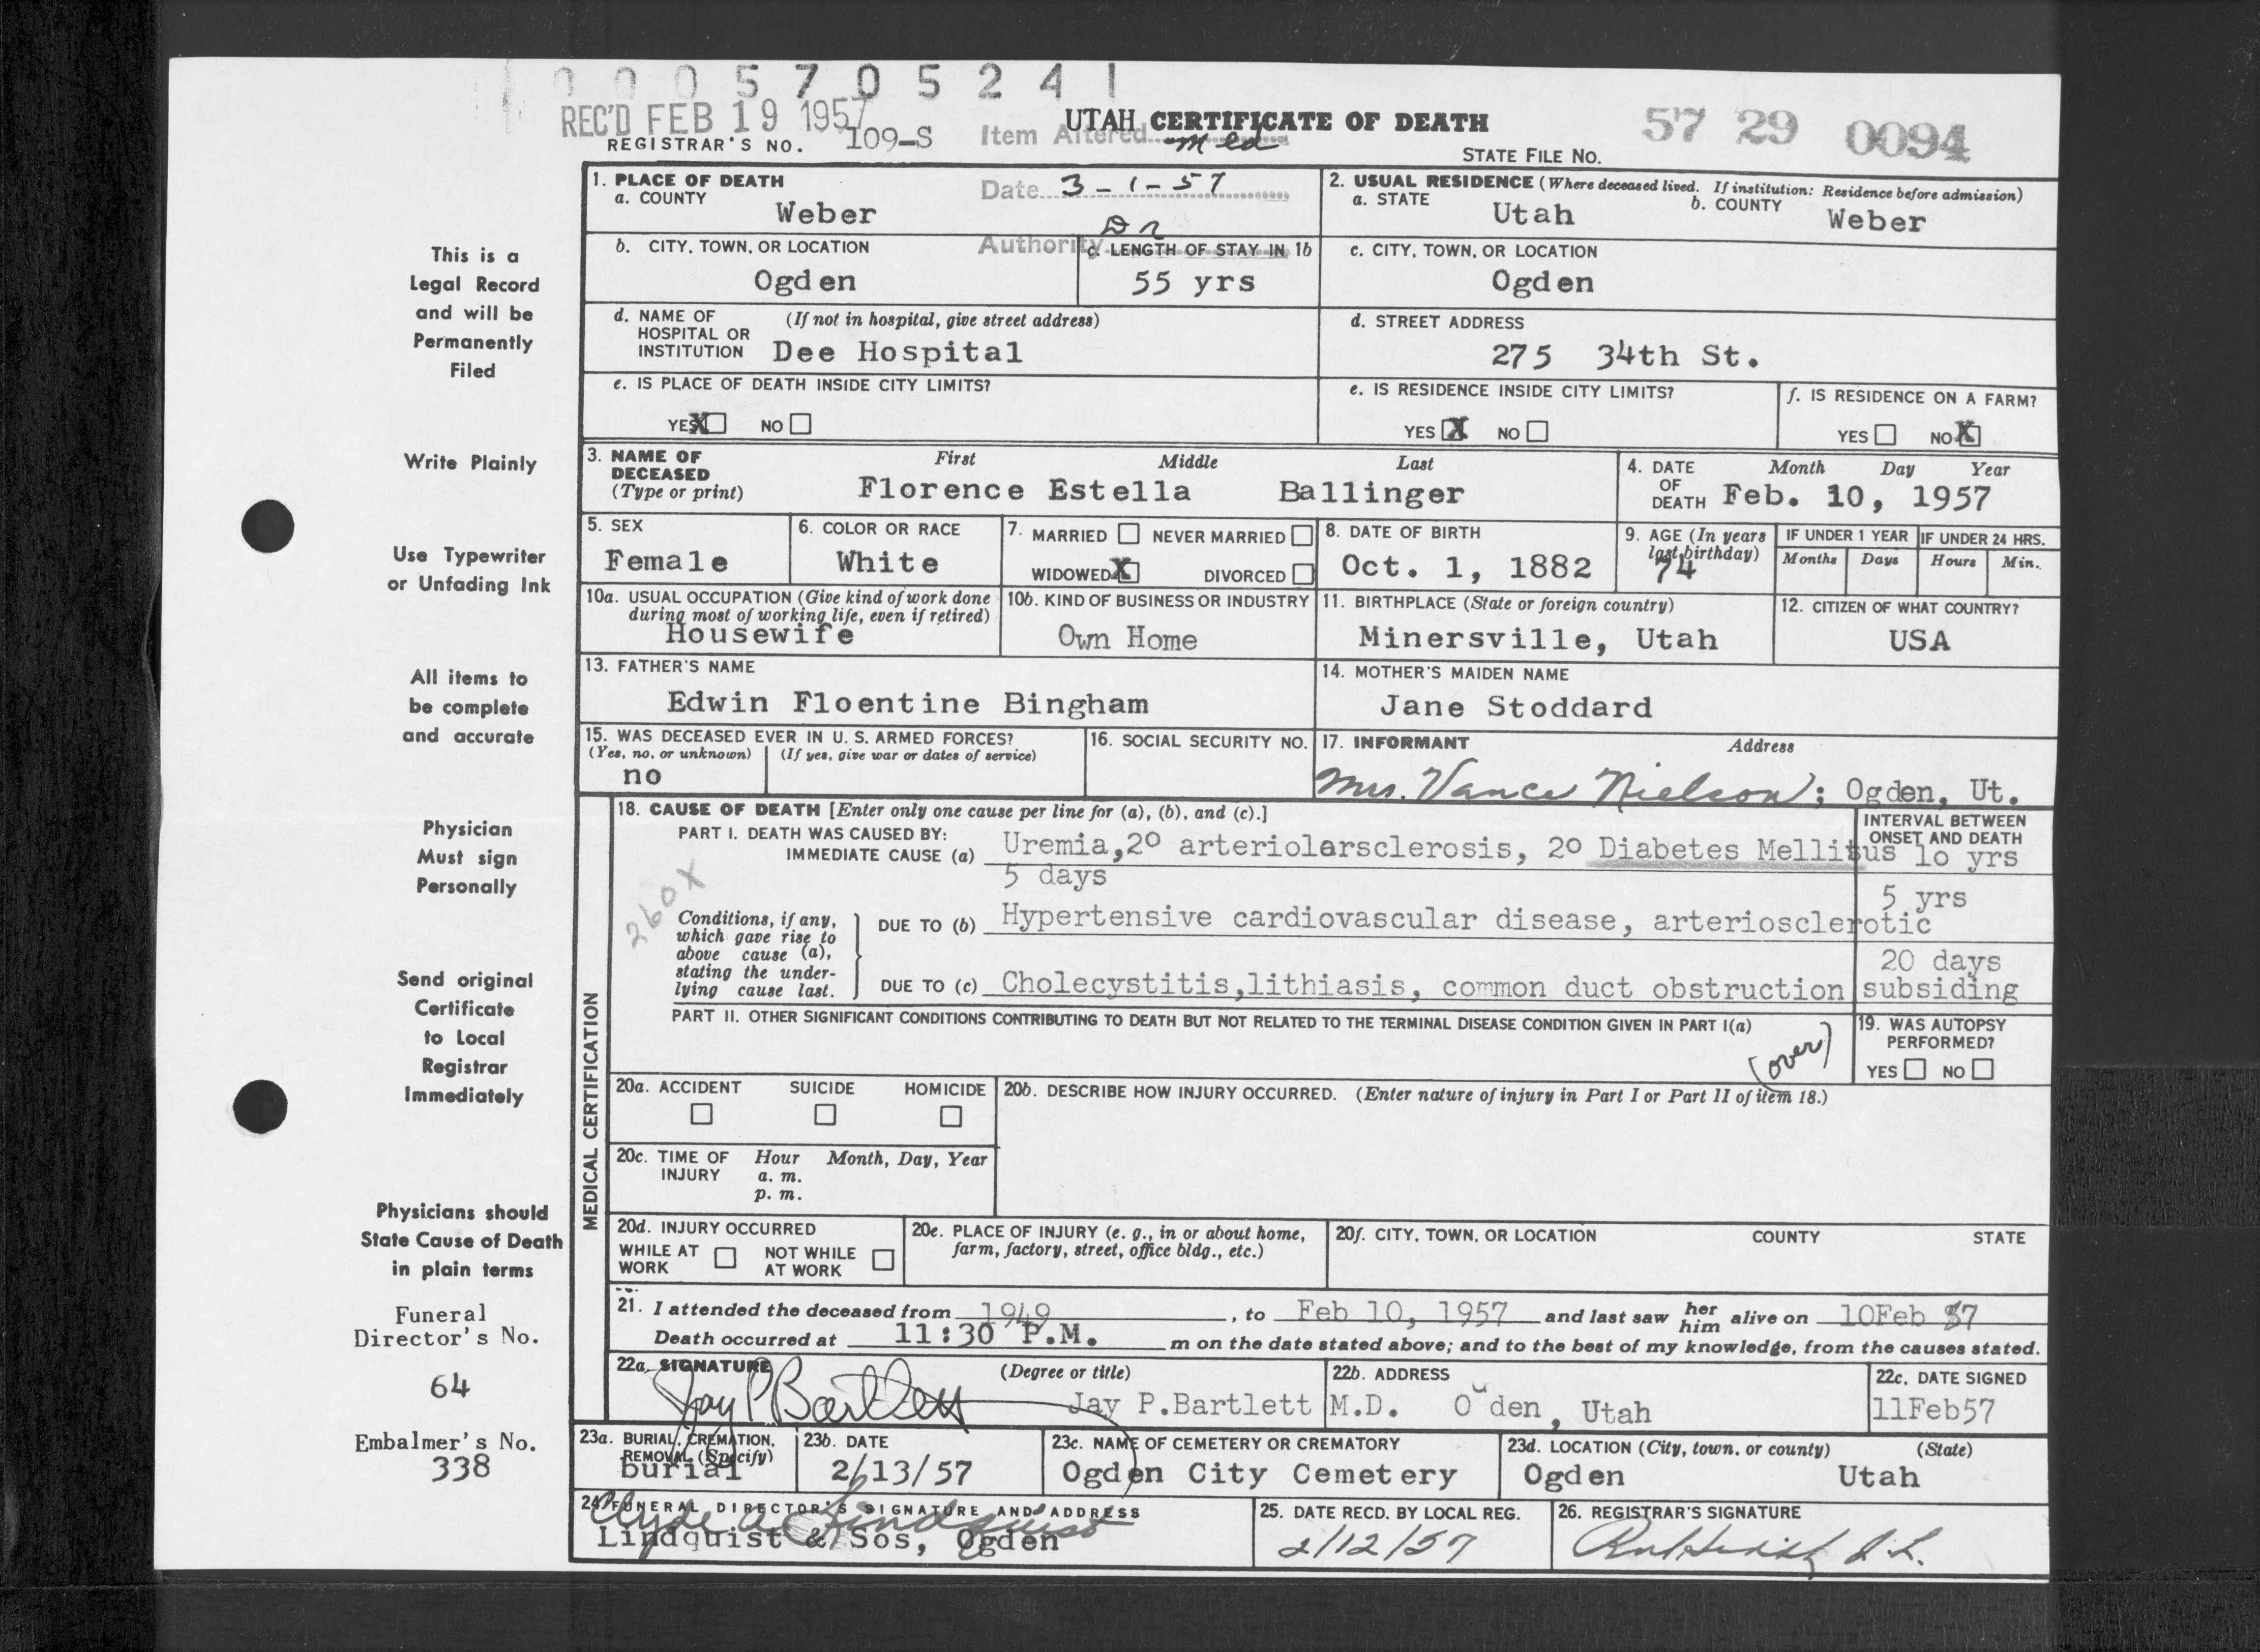 0 0 0 5 7 0 5 2 4 1
REC'D FEB 19 1957
UTAH CERTIFICATE OF DEATH
57 29 0094
REGISTRAR'S NO. 109-S
Item Altered Med
STATE FILE NO.
1. PLACE OF DEATH
a. COUNTY
Weber
Date 3-1-57
Authority Dr
2. USUAL RESIDENCE (Where deceased lived. If institution: Residence before admission)
a. STATE Utah b. COUNTY Weber
b. CITY, TOWN, OR LOCATION
Ogden
c. LENGTH OF STAY IN 1b
55 yrs
c. CITY, TOWN, OR LOCATION
Ogden
d. NAME OF HOSPITAL OR INSTITUTION (If not in hospital, give street address)
Dee Hospital
d. STREET ADDRESS
275 34th St.
e. IS PLACE OF DEATH INSIDE CITY LIMITS?
YES X NO
e. IS RESIDENCE INSIDE CITY LIMITS?
YES X NO
f. IS RESIDENCE ON A FARM?
YES NO X
3. NAME OF DECEASED (Type or print)
First Middle Last
Florence Estella Ballinger
4. DATE OF DEATH Month Day Year
Feb. 10, 1957
5. SEX
Female
6. COLOR OR RACE
White
7. MARRIED NEVER MARRIED
WIDOWED X DIVORCED
8. DATE OF BIRTH
Oct. 1, 1882
9. AGE (In years last birthday)
74
IF UNDER 1 YEAR
Months Days
IF UNDER 24 HRS.
Hours Min.
10a. USUAL OCCUPATION (Give kind of work done during most of working life, even if retired)
Housewife
10b. KIND OF BUSINESS OR INDUSTRY
Own Home
11. BIRTHPLACE (State or foreign country)
Minersville, Utah
12. CITIZEN OF WHAT COUNTRY?
USA
13. FATHER'S NAME
Edwin Floentine Bingham
14. MOTHER'S MAIDEN NAME
Jane Stoddard
15. WAS DECEASED EVER IN U. S. ARMED FORCES?
(Yes, no, or unknown) (If yes, give war or dates of service)
no
16. SOCIAL SECURITY NO.
17. INFORMANT Address
Mrs. Vance Nielson; Ogden, Ut.
MEDICAL CERTIFICATION
18. CAUSE OF DEATH [Enter only one cause per line for (a), (b), and (c).]
INTERVAL BETWEEN ONSET AND DEATH
PART I. DEATH WAS CAUSED BY:
IMMEDIATE CAUSE (a) Uremia,2º arteriolarsclerosis, 2º Diabetes Mellitus 10 yrs
5 days
260X
5 yrs
Conditions, if any, which gave rise to above cause (a), stating the underlying cause last.
DUE TO (b) Hypertensive cardiovascular disease, arteriosclerotic
20 days
DUE TO (c) Cholecystitis,lithiasis, common duct obstruction subsiding
PART II. OTHER SIGNIFICANT CONDITIONS CONTRIBUTING TO DEATH BUT NOT RELATED TO THE TERMINAL DISEASE CONDITION GIVEN IN PART I(a)
(over)
19. WAS AUTOPSY PERFORMED?
YES NO
20a. ACCIDENT SUICIDE HOMICIDE
20b. DESCRIBE HOW INJURY OCCURRED. (Enter nature of injury in Part I or Part II of item 18.)
20c. TIME OF INJURY Hour Month, Day, Year
a. m.
p. m.
20d. INJURY OCCURRED
WHILE AT WORK NOT WHILE AT WORK
20e. PLACE OF INJURY (e. g., in or about home, farm, factory, street, office bldg., etc.)
20f. CITY, TOWN, OR LOCATION COUNTY STATE
21. I attended the deceased from 1949, to Feb 10, 1957 and last saw her him alive on 10Feb 57
Death occurred at 11:30 P.M. m on the date stated above; and to the best of my knowledge, from the causes stated.
22a. SIGNATURE (Degree or title)
Jay P Bartlett
Jay P.Bartlett M.D.
22b. ADDRESS
O den, Utah
22c. DATE SIGNED
11Feb57
23a. BURIAL, CREMATION, REMOVAL (Specify)
burial
23b. DATE
2/13/57
23c. NAME OF CEMETERY OR CREMATORY
Ogden City Cemetery
23d. LOCATION (City, town, or county) (State)
Ogden Utah
24. FUNERAL DIRECTOR'S SIGNATURE AND ADDRESS
Clyde A Lindquist
Lindquist & Sos, Ogden
25. DATE RECD. BY LOCAL REG.
2/12/57
26. REGISTRAR'S SIGNATURE
This is a
Legal Record
and will be
Permanently
Filed
Write Plainly
Use Typewriter
or Unfading Ink
All items to
be complete
and accurate
Physician
Must sign
Personally
Send original
Certificate
to Local
Registrar
Immediately
Physicians should
State Cause of Death
in plain terms
Funeral
Director's No.
64
Embalmer's No.
338